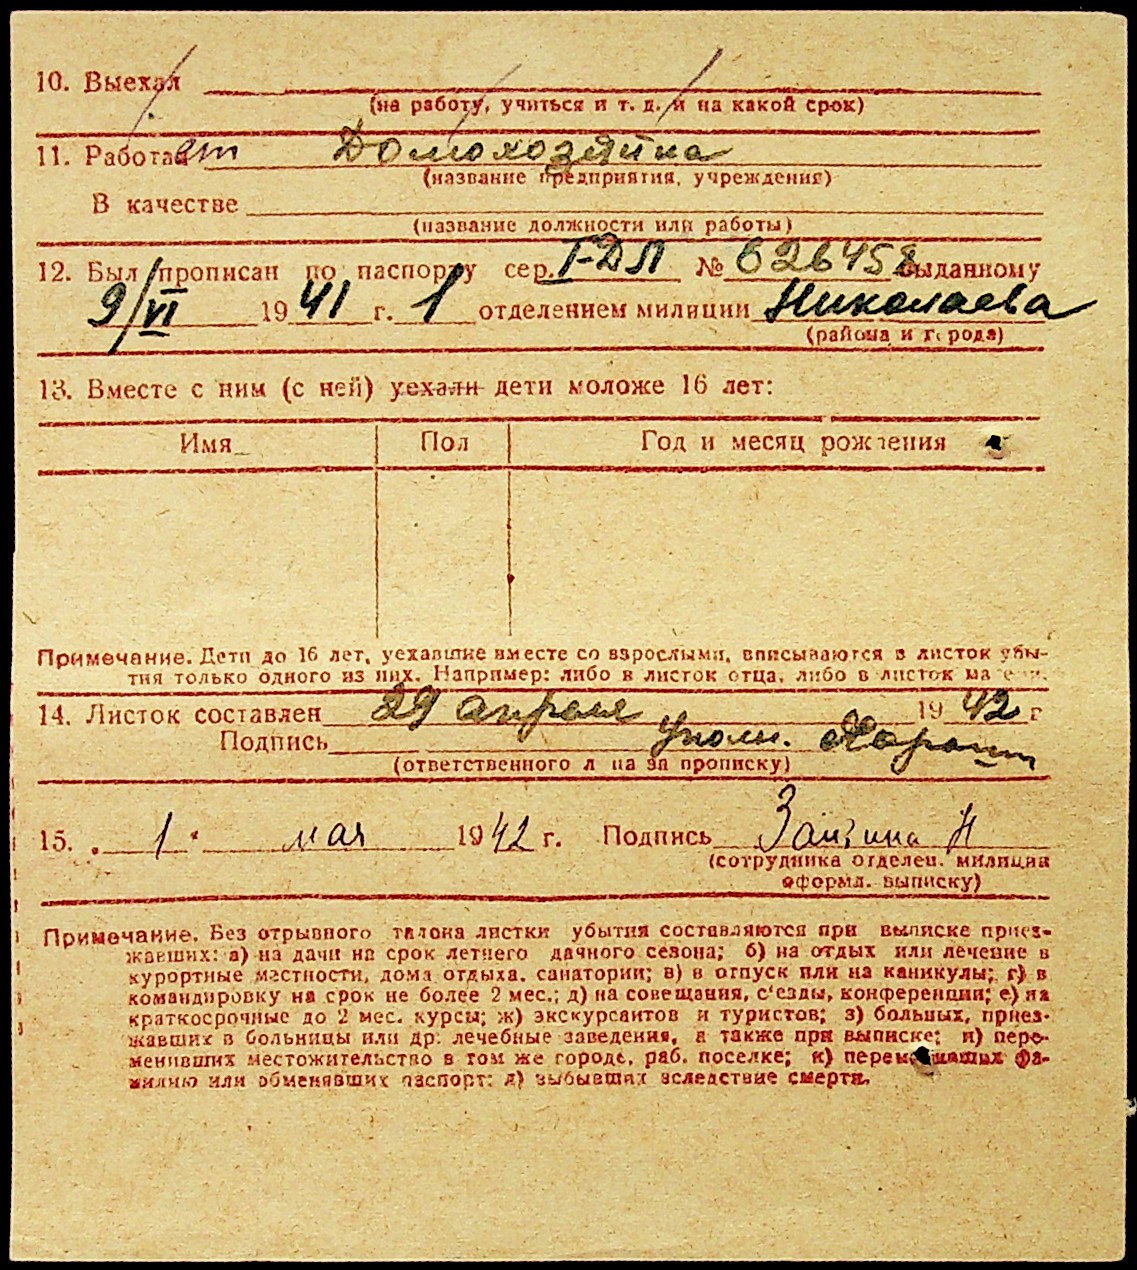 10. Выехал
(на работу, учиться и т. д. и на какой срок)
11. Работает Домохозяйка
(название предприятия, учреждения)
В качестве
(название должности или работы)
12. Был прописан по паспорту сер. I-ДЛ № 626458 выданному
9/VI 1941 г. 1 отделением милиции Николаева
(района и города)
13. Вместе с ним (с ней) уехали дети моложе 16 лет:
Имя Пол Год и месяц рождения
Примечание. Дети до 16 лет, уехавшие вместе со взрослыми, вписываются в листок убы-
тия только одного из них. Например: либо в листок отца, либо в листок матери.
14. Листок составлен 29 апреля 1942 г
Подпись уполн.
(ответственного лица за прописку)
15. 1 мая 1942 г. Подпись
(сотрудника отделен. милиции
оформл. выписку)
Примечание. Без отрывного талона листки убытия составляются при выписке приез-
жавших: а) на дачи на срок летнего дачного сезона; б) на отдых или лечение в
курортные местности, дома отдыха, санатории; в) в отпуск или на каникулы; г) в
командировку на срок не более 2 мес.; д) на совещания, с'езды, конференции; е) на
краткосрочные до 2 мес. курсы; ж) экскурсантов и туристов; з) больных, приез-
жавших в больницы или др. лечебные заведения, а также при выписке: и) пере-
менивших местожительство в том же городе, раб. поселке; к) переменивших фа-
милию или обменявших паспорт; л) выбывших вследствие смерти.